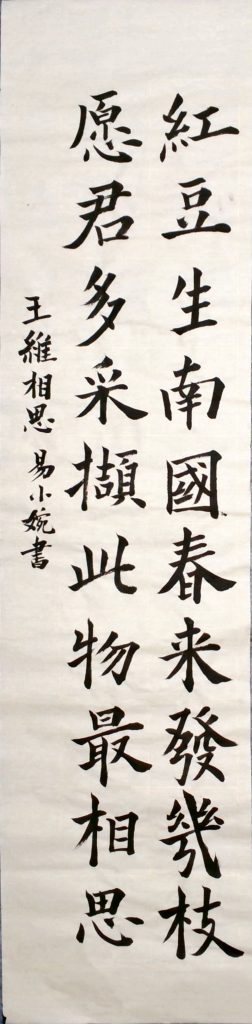 紅豆生南國春来發幾枝
愿君多采擷此物最相思
王維相思 易小婉書